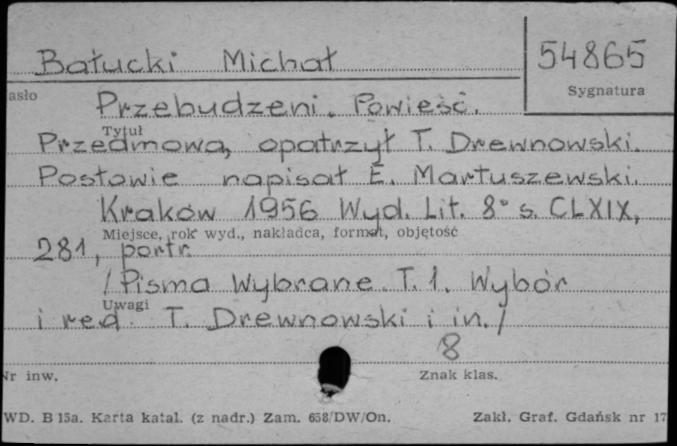 Bałucki Michał 54865
asło Sygnatura
Przebudzeni. Powieść.
Tytuł
Przedmową, opatrzył T. Drewnowski.
Posłowie napisał E. Martuszewski.
Kraków 1956 Wyd. Lit. 8° s. CLXIX,
Miejsce, rok wyd., nakładca, format, objętość
281, portr.
/Pisma Wybrane. T. 1. Wybór
Uwagi
i red. T. Drewnowski i in./
8
Nr inw. Znak klas.
WD. B 15a. Karta katal. (z nadr.) Zam. 658/DW/On. Zakł. Graf. Gdańsk nr 17